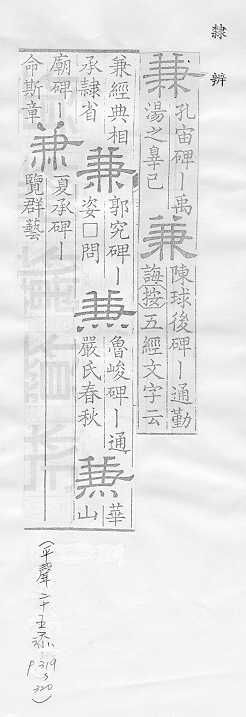 隸辨
兼 孔宙碑丨禹
湯之辠己
兼 陳球後碑丨通勤
誨按五經文字云
兼經典相
承隸省
兼 郭究碑丨
姿□問
兼 魯峻碑丨通
嚴氏春秋
兼 華
山
廟碑丨
命斯章
兼 夏承碑丨
覽群藝
(平聲二十五添 p.319 320)